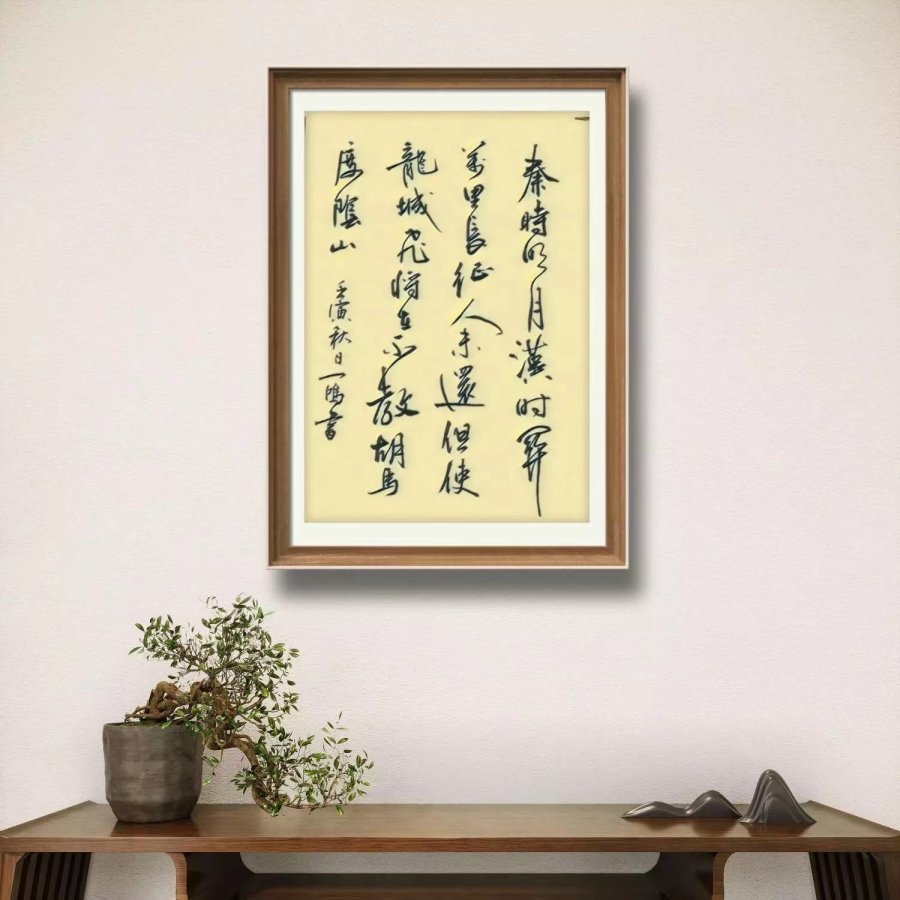 秦時明月漢时關
萬里長征人未還但使
龍城飛将在不教胡馬
度陰山
壬寅秋日一書